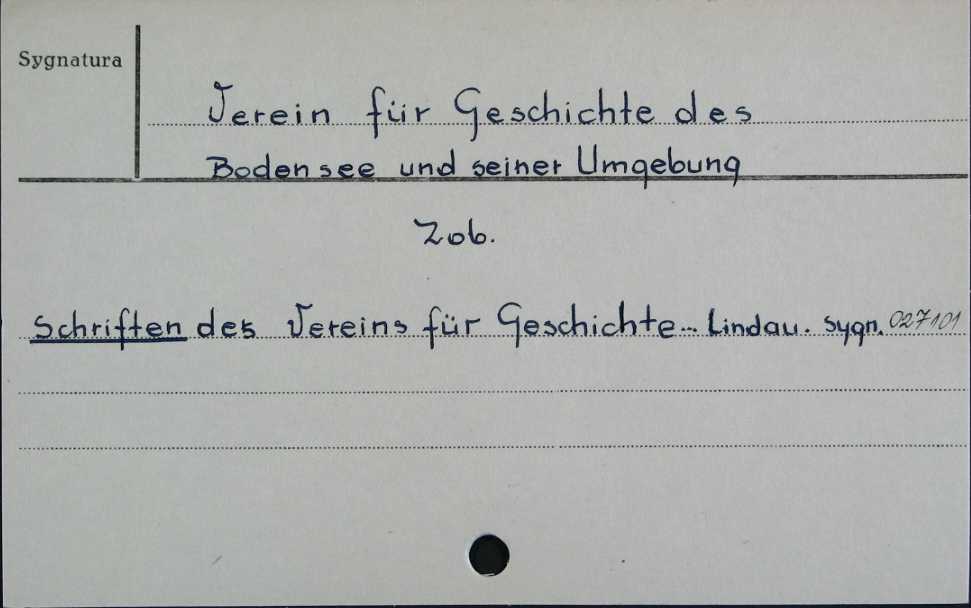 Sygnatura
Verein für Geschichte des
Bodensee und seiner Umgebung
Zob.
Schriften des Vereins für Geschichte... Lindau. Sygn. 027101